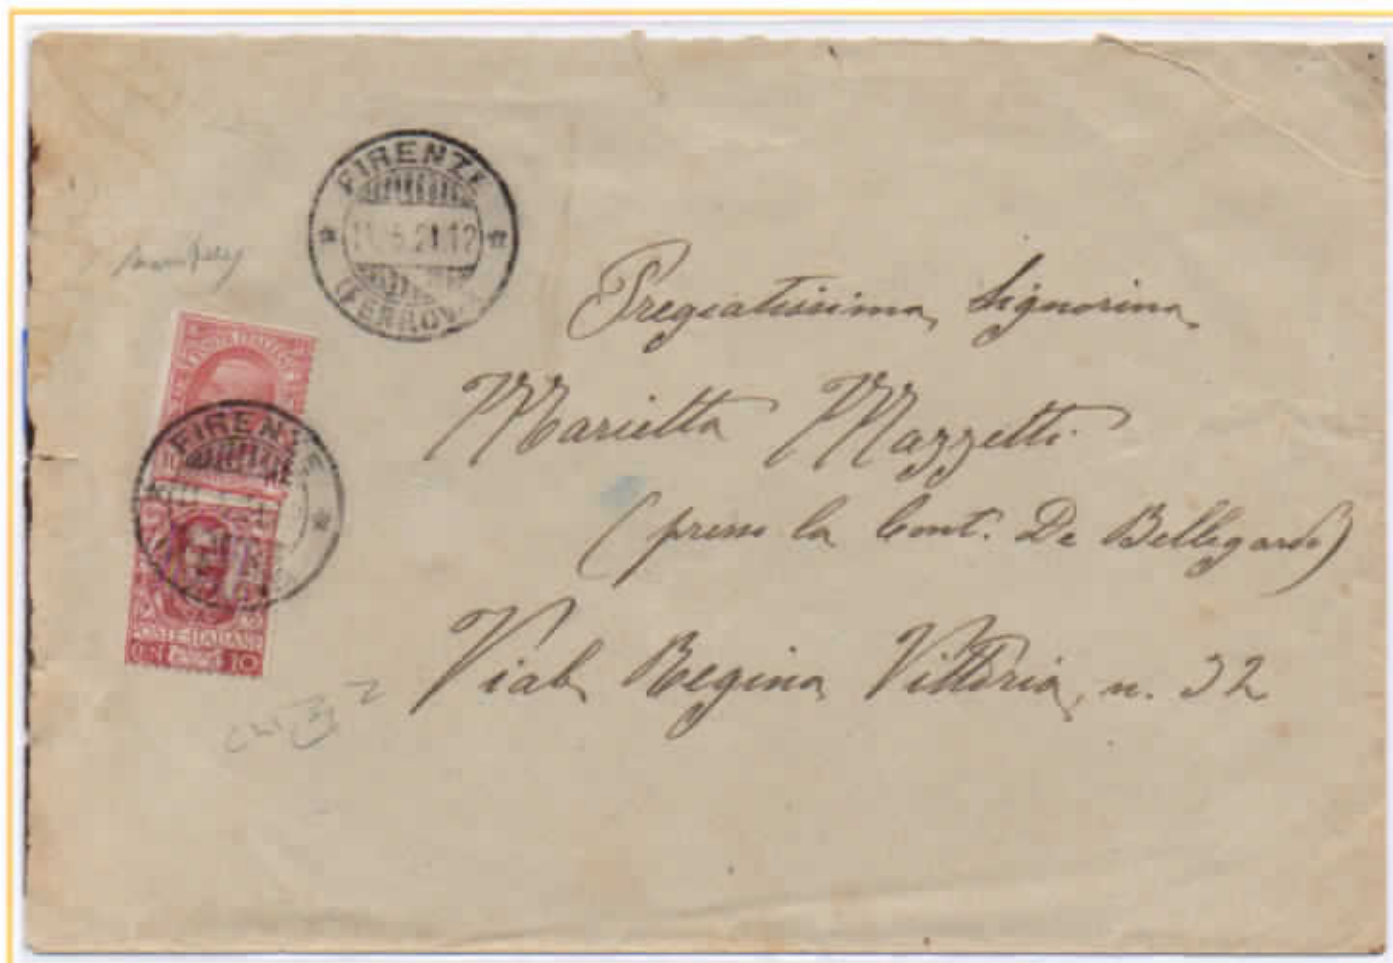 FIRENZE
21.12
(FERROV
POSTE ITALIANE
FIRENZE
POSTE ITALIANE
CEN 10
Pregiatissima Signorina
Marietta Mazzetti
(presso la Cont. De Bellegarde)
Viale Regina Vittoria, n. 32